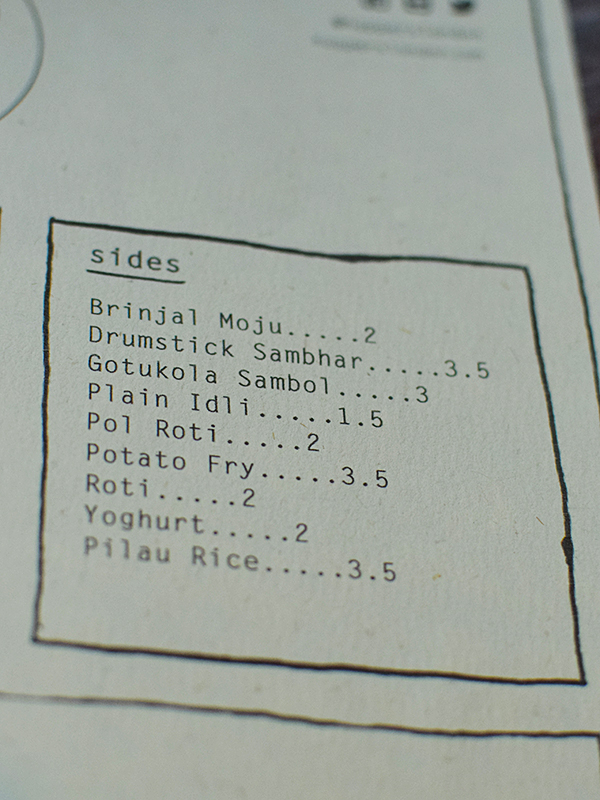 sides
Brinjal Moju.....2
Drumstick Sambhar.....3.5
Gotukola Sambol.....3
Plain Idli.....1.5
Pol Roti.....2
Potato Fry.....3.5
Roti.....2
Yoghurt.....2
Pilau Rice.....3.5